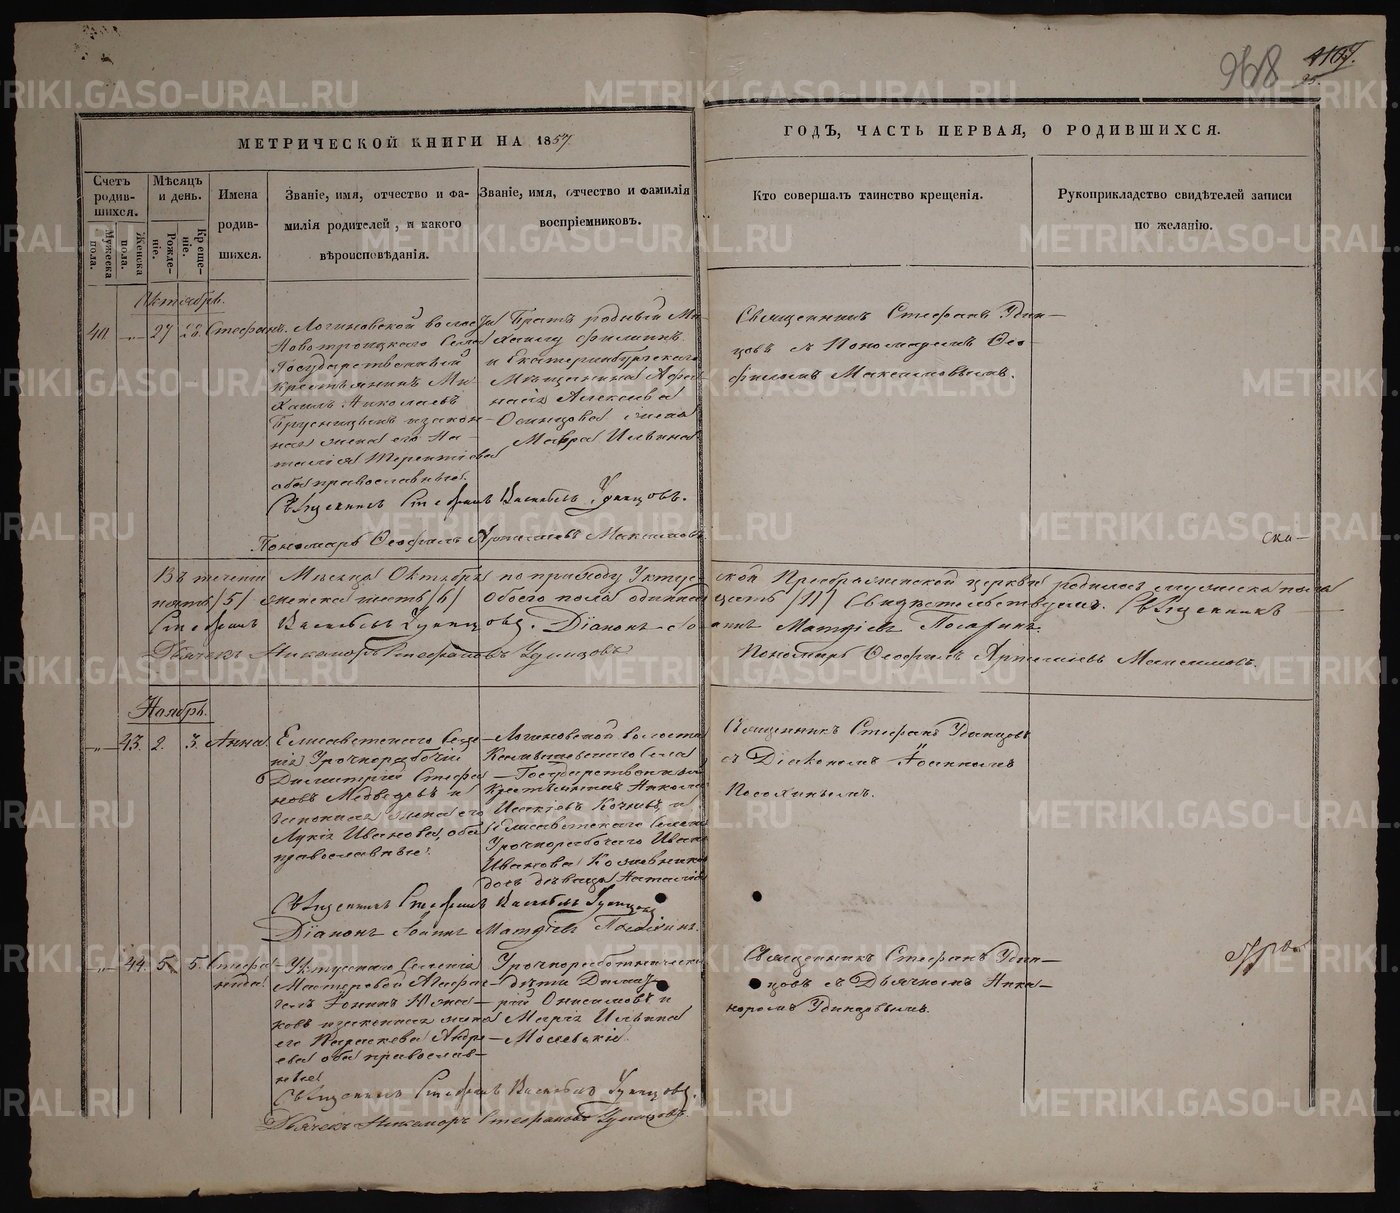 968
1107.
95
МЕТРИЧЕСКОЙ КНИГИ НА 1857.
ГОДЪ, ЧАСТЬ ПЕРВАЯ, О РОДИВШИХСЯ.
Счетъ родив-шихся.
Мужеска пола.
Женска пола.
Мѣсяцъ и день.
Рожде-ніе.
Креще-ніе.
Имена
родив-
шихся.
Званіе, имя, отчество и фа-
милія родителей, и какого
вѣроисповѣданія.
Званіе, имя, отчество и фамилія
воспріемниковъ.
Кто совершалъ таинство крещенія.
Рукоприкладство свидѣтелей записи
по желанію.
Октябрь.
40. -„- 27 28. Стефанъ.
Логиновской волости
Новотроицкаго Села
Государственный
крестьянинъ Ми-
хаилъ Николаевъ
Брусницынъ и закон-
ная жена его На-
талія Терентіева
оба православные.
Братъ родный Ми-
хаилу Филиппъ
и Екатеринбургскаго
Мѣщанина
Алексѣева
Осинцова жена
Мавра Ильина
Священникъ Стефанъ Удин-
цовъ съ Пономаремъ Ѳео-
филомъ Максимовымъ.
Священникъ Стефанъ Васильевъ Удинцовъ.
Пономарь Ѳеофилъ Максимовъ
ска-
Въ теченіи Мѣсяца Октября по приходу Уктус-
ской Преображенской церкви родилось мужеска пола
пять /5/ женска шесть /6/ обоего пола одиннад-
цать /11/ Свидѣтельствуемъ. Священникъ
Стефанъ Васильевъ Удинцовъ. Діаконъ Іо-
аннъ Матфіевъ
Дьячекъ Никаноръ Стефановъ Удинцовъ
Пономарь Ѳеофилъ Максимовъ.
Ноябрь.
-„- 43. 2. 3. Анна
Елисаветскаго Селе-
нія Урочнорабочій
Димитрій Стефа-
новъ Медведевъ и
законная жена его
Лукія Иванова, оба
православные.
Логиновской волости
села
Государственный
крестьянинъ Никола
и
Елисаветскаго Селенія
Урочнорабочаго Ивана
Иванова Кожевнико-
дочь дѣвица Наталія
Священникъ Стефанъ Удинцовъ
съ Діакономъ Іоанномъ
Священникъ Стефанъ Васильевъ Удинцовъ
Діаконъ Іоаннъ Матфіевъ
-„- 44. 5. 5. Стефа-
нида.
Уктусскаго Селенія
Мастеровой
и законная жена
его Параскева Андре-
ева оба православ-
ные.
Урочноработническія
дѣти Дмит-
рій и
Марія Ильина
Священникъ Стефанъ Удин-
цовъ съ Дьячкомъ Ника-
норомъ Удинцовымъ.
Священникъ Стефанъ Васильевъ Удинцовъ.
Дьячекъ Никаноръ Стефановъ Удинцовъ.
METRIKI.GASO-URAL.RU